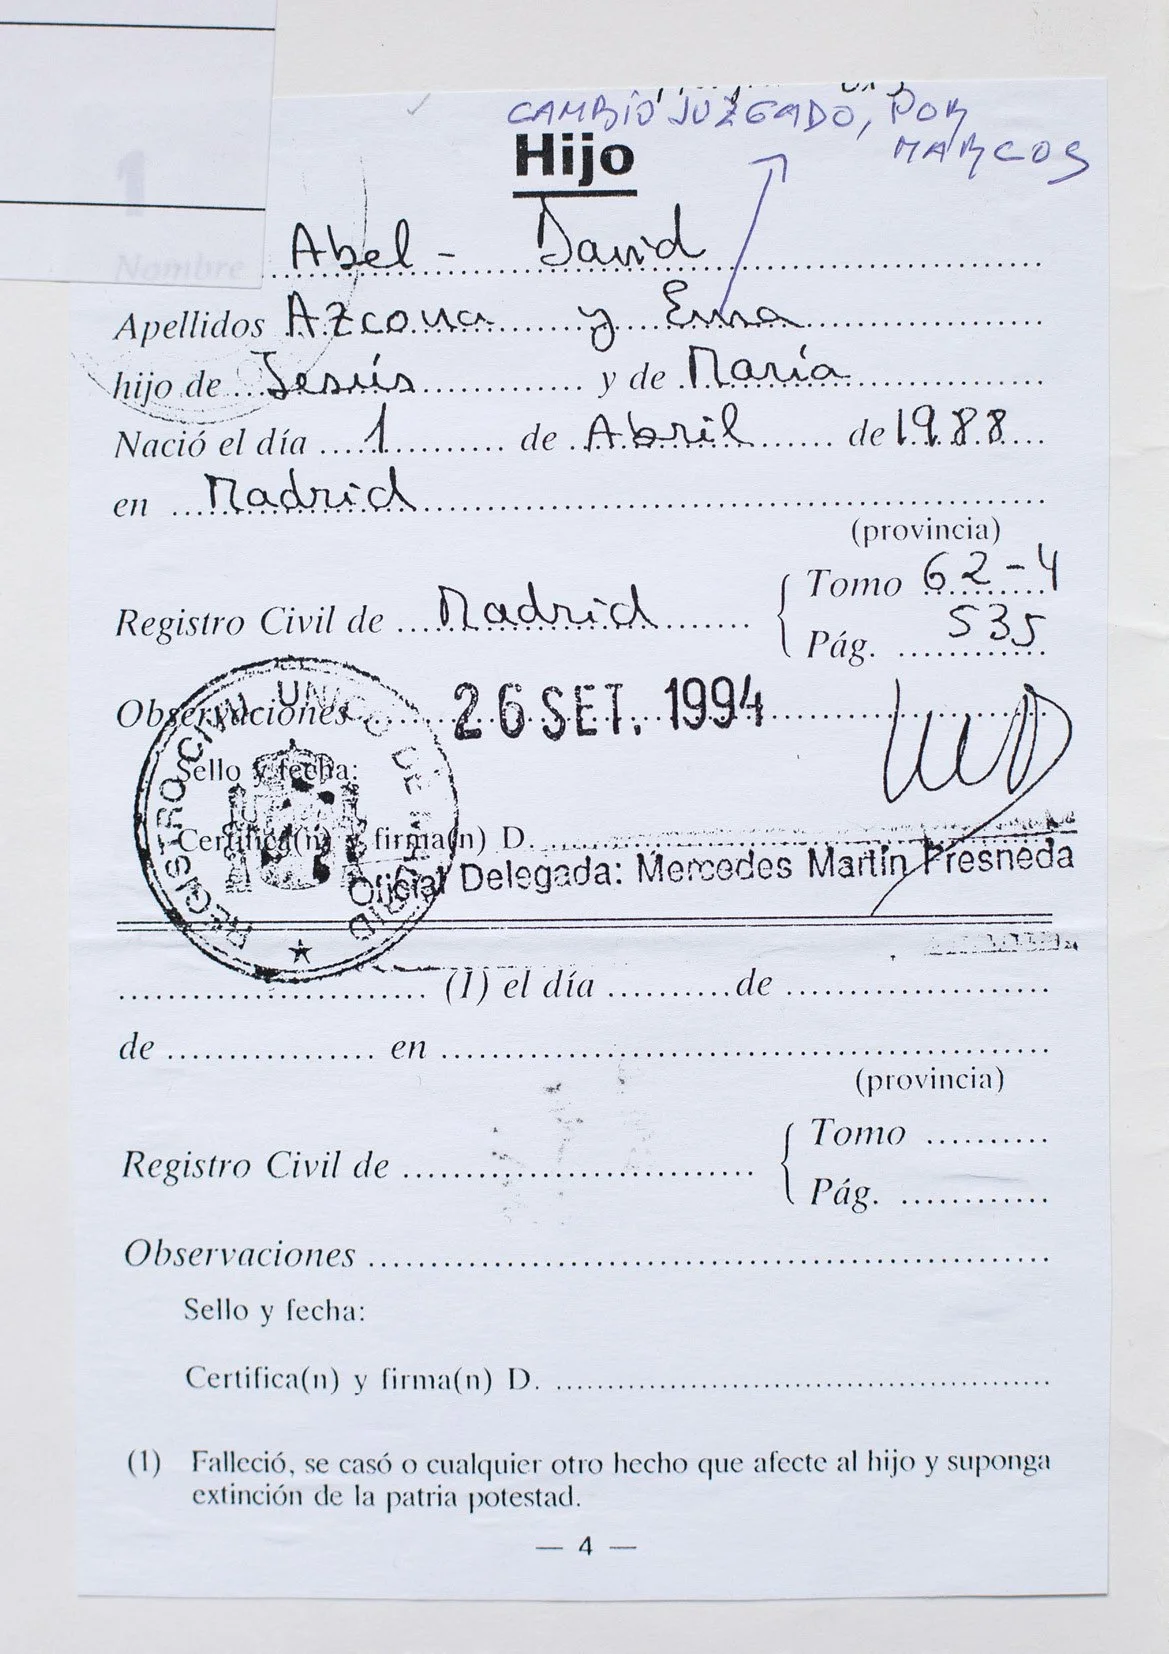 CAMBIO JUZGADO, POR
MARCOS
Hijo
1
Nombre Abel - David
Apellidos Azcona y Ema
hijo de Jesús y de María
Nació el día 1 de Abril de 1988
en Madrid
(provincia)
Registro Civil de Madrid
Tomo 62-4
Pág. 535
Observaciones 26 SET. 1994
Sello y fecha:
REGISTRO CIVIL UNICO DE MADRID
Certifica(n) y firma(n) D.
Oficial Delegada: Mercedes Martín Fresneda
(1) el día de
de en
(provincia)
Registro Civil de
Tomo
Pág.
Observaciones
Sello y fecha:
Certifica(n) y firma(n) D.
(1) Falleció, se casó o cualquier otro hecho que afecte al hijo y suponga
extinción de la patria potestad.
— 4 —